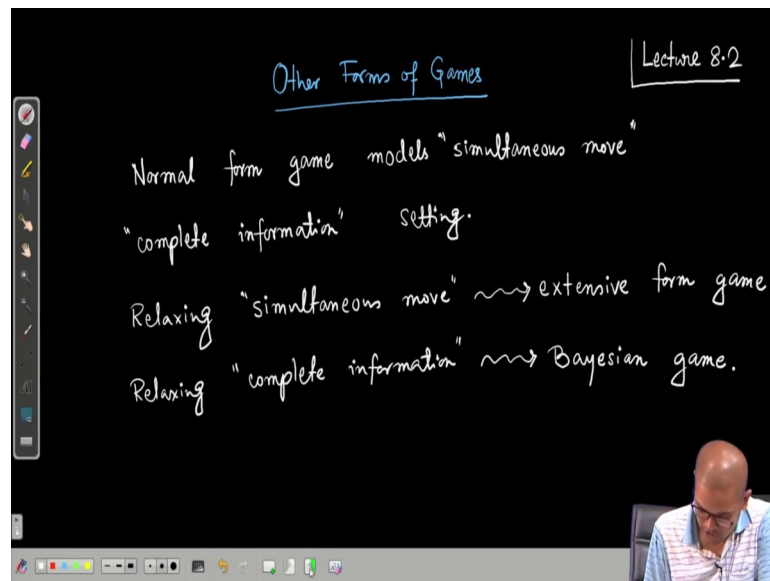 Lecture 8.2
Other Forms of Games
Normal form game models "simultaneous move"
"complete information" setting.
Relaxing "simultaneous move" ⟿ extensive form game
Relaxing "complete information" ⟿ Bayesian game.